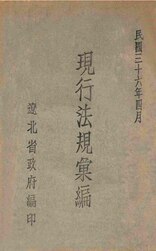 民國三十六年四月
現行法規彙編
遼北省政府編印